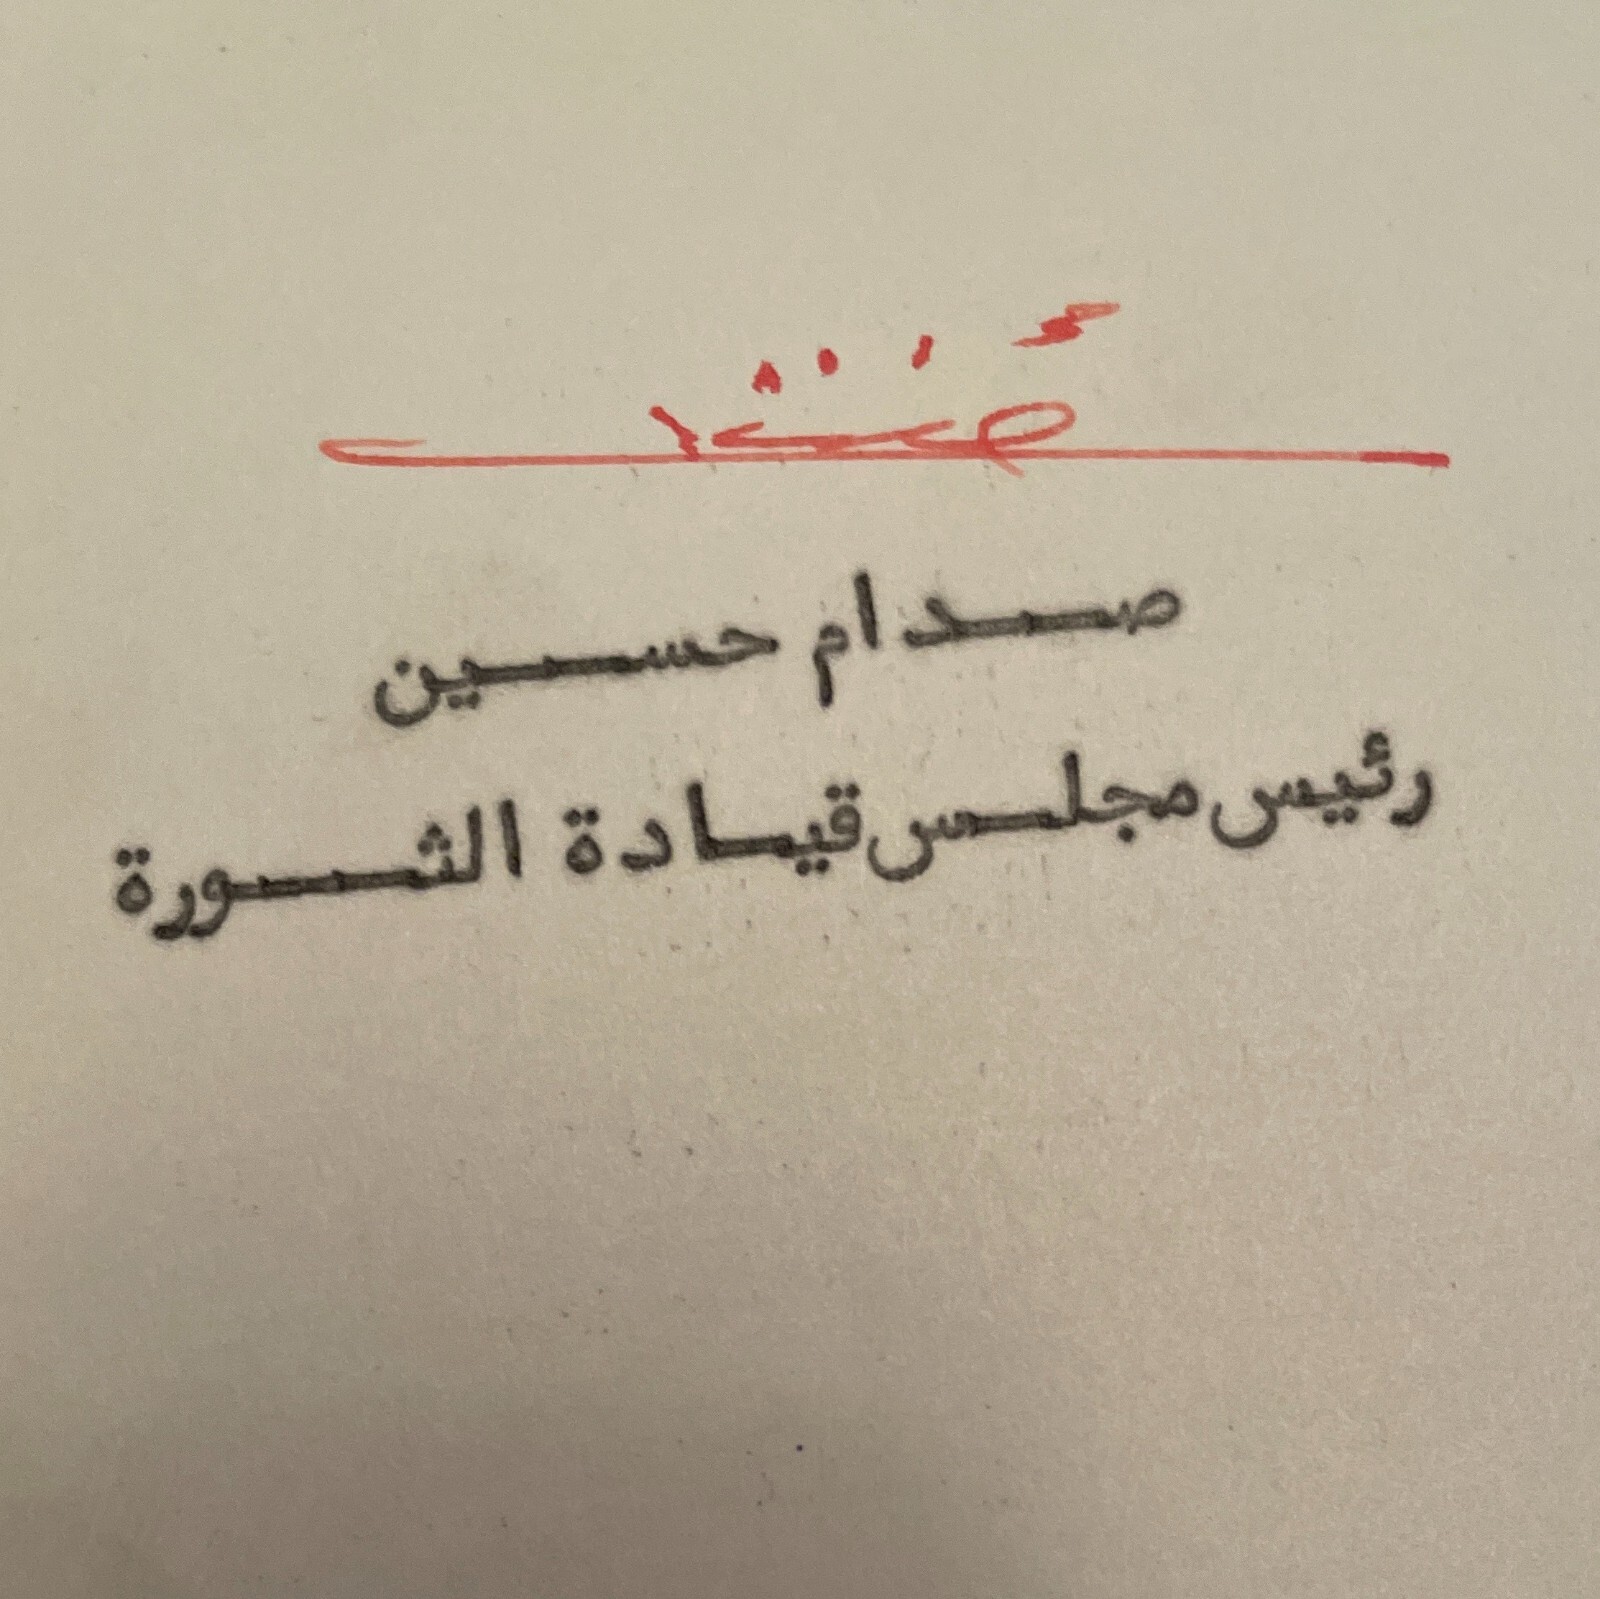 صدام حسين
رئيس مجلس قيادة الثورة